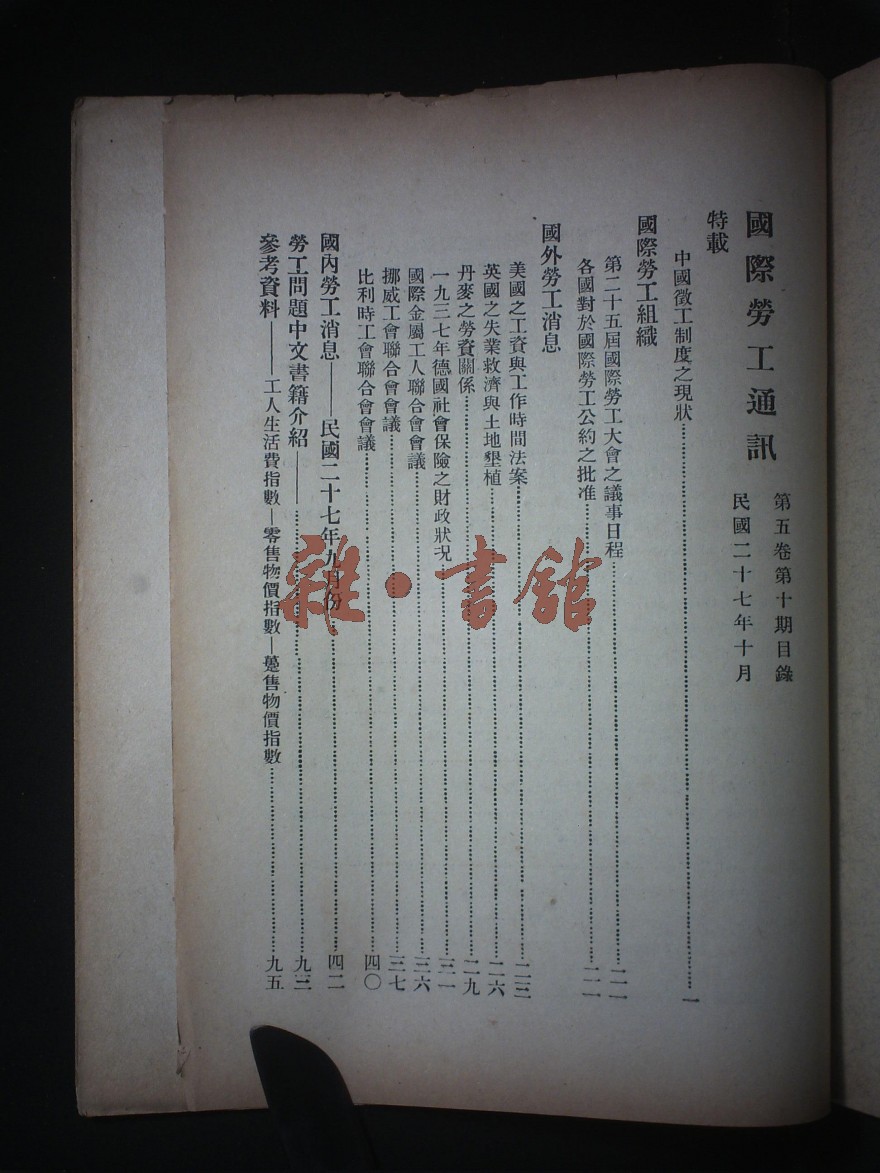 國際勞工通訊 第五卷第十期目錄
民國二十七年十月
特載
中國徵工制度之現狀……一
國際勞工組織
第二十五屆國際勞工大會之議事日程……二一
各國對於國際勞工公約之批准……二二
國外勞工消息
美國之工資與工作時間法案……二三
英國之失業救濟與土地墾植……二六
丹麥之勞資關係……二九
一九三七年德國社會保險之財政狀況……三一
國際金屬工人聯合會會議……三六
挪威工會聯合會會議……三七
比利時工會聯合會會議……四〇
國內勞工消息——民國二十七年九月份……四二
勞工問題中文書籍介紹——……九三
參考資料——工人生活費指數—零售物價指數—躉售物價指數……九五
雜·書館